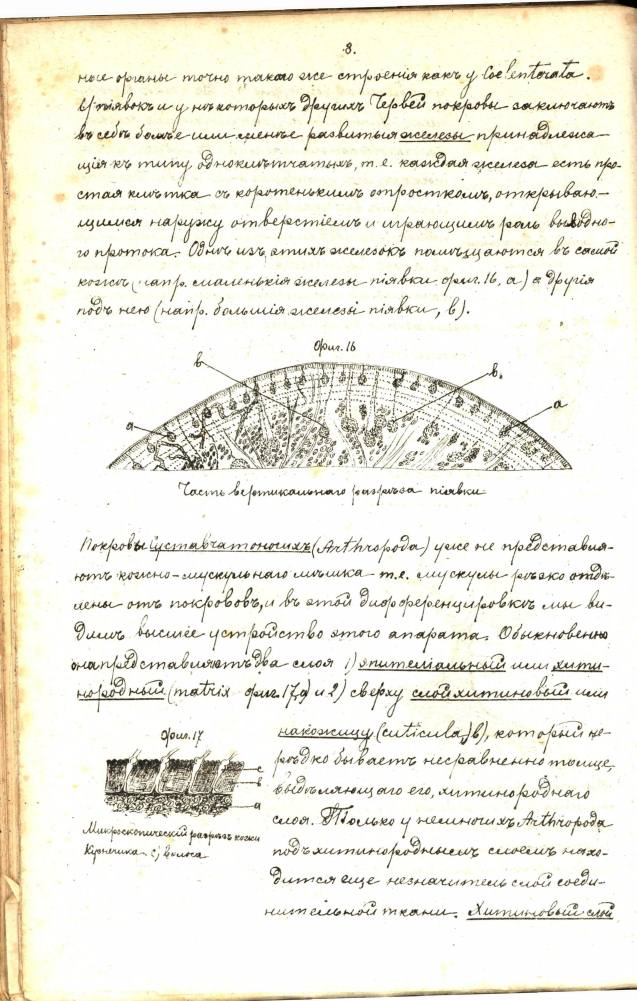 8.
ные органы точно такого же строенія какъ у Coelenterata.
У піявокъ и у нѣкоторыхъ другихъ Червей покровы заключаютъ
въ себѣ болѣе или менѣе развитыя железы принадлежа-
щія къ типу одноклѣтчатыхъ, т.е. каждая железа есть про-
стая клѣтка съ коротенькимъ отросткомъ, открываю-
щимся наружу отверстіемъ и играющимъ роль выводно-
го протока. Однѣ изъ этихъ железокъ помѣщаются въ самой
кожѣ (напр. маленькія железы піявки фиг. 16, а) а другія
подъ нею (напр. большія железы піявки, в).
Фиг. 16
в
в.
а
а
Часть вертикальнаго разрѣза піявки
Покровы Суставчатоногихъ (Arthropoda) уже не представля-
ютъ кожно-мускульнаго мѣшка т.е. мускулы рѣзко отдѣ-
лены отъ покрововъ, и въ этой дифференцировкѣ мы ви-
димъ высшее устройство этого апарата. Обыкновенно
она представляетъ два слоя 1) эпителіальный или хити-
нородный (matrix фиг. 17, а) и 2) сверху слой хитиновый или
накожицу (cuticula, в), который не-
рѣдко бываетъ несравненно толще,
выдѣляющаго его, хитинороднаго
слоя. Только у немногихъ Arthropoda
подъ хитинороднымъ слоемъ нахо-
дится еще незначитель слой соеди-
нительной ткани. Хитиновый слой
Фиг. 17
с
в
а
Микроскопическій разрѣзъ кожи
Кузнечика с, волоса